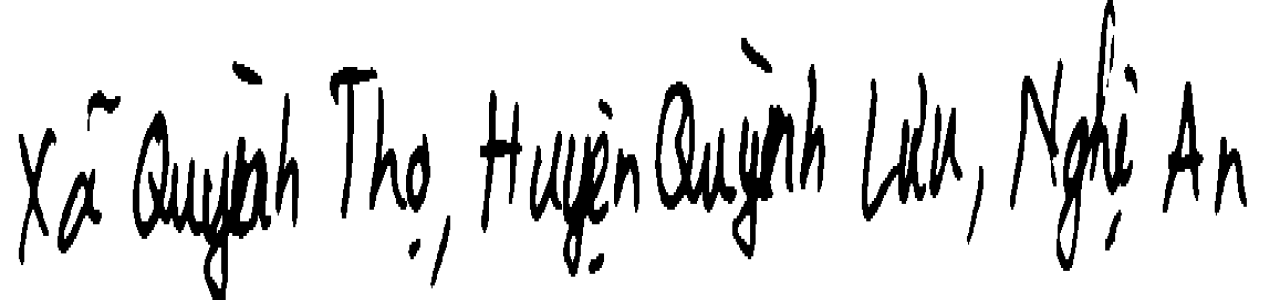 Xã Quỳnh Thọ, Huyện Quỳnh Lưu, Nghị An